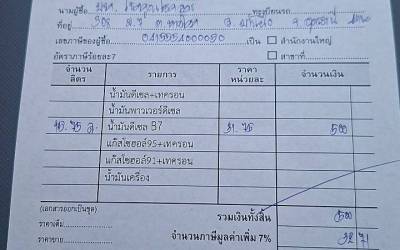 นามผู้ซื้อ ทะเบียนรถ
ที่อยู่ 308 ม.7
เลขภาษีของผู้ซื้อ 0415554000090 เป็น สำนักงานใหญ่
อัตราภาษีร้อยละ7 สาขาที่
จำนวนลิตร รายการ ราคาหน่วยละ จำนวนเงิน
น้ำมันดีเซล+เทครอน
น้ำมันพาวเวอร์ดีเซล
15.75 ล. น้ำมันดีเซล B7 31.75 500
แก๊สโซฮอล์95+เทครอน
แก๊สโซฮอล์91+เทครอน
น้ำมันเครื่อง
(เอกสารออกเป็นชุด) รวมเงินทั้งสิ้น 500
ราคาเต็ม
ราคาขาย จำนวนภาษีมูลค่าเพิ่ม 7% 32 71